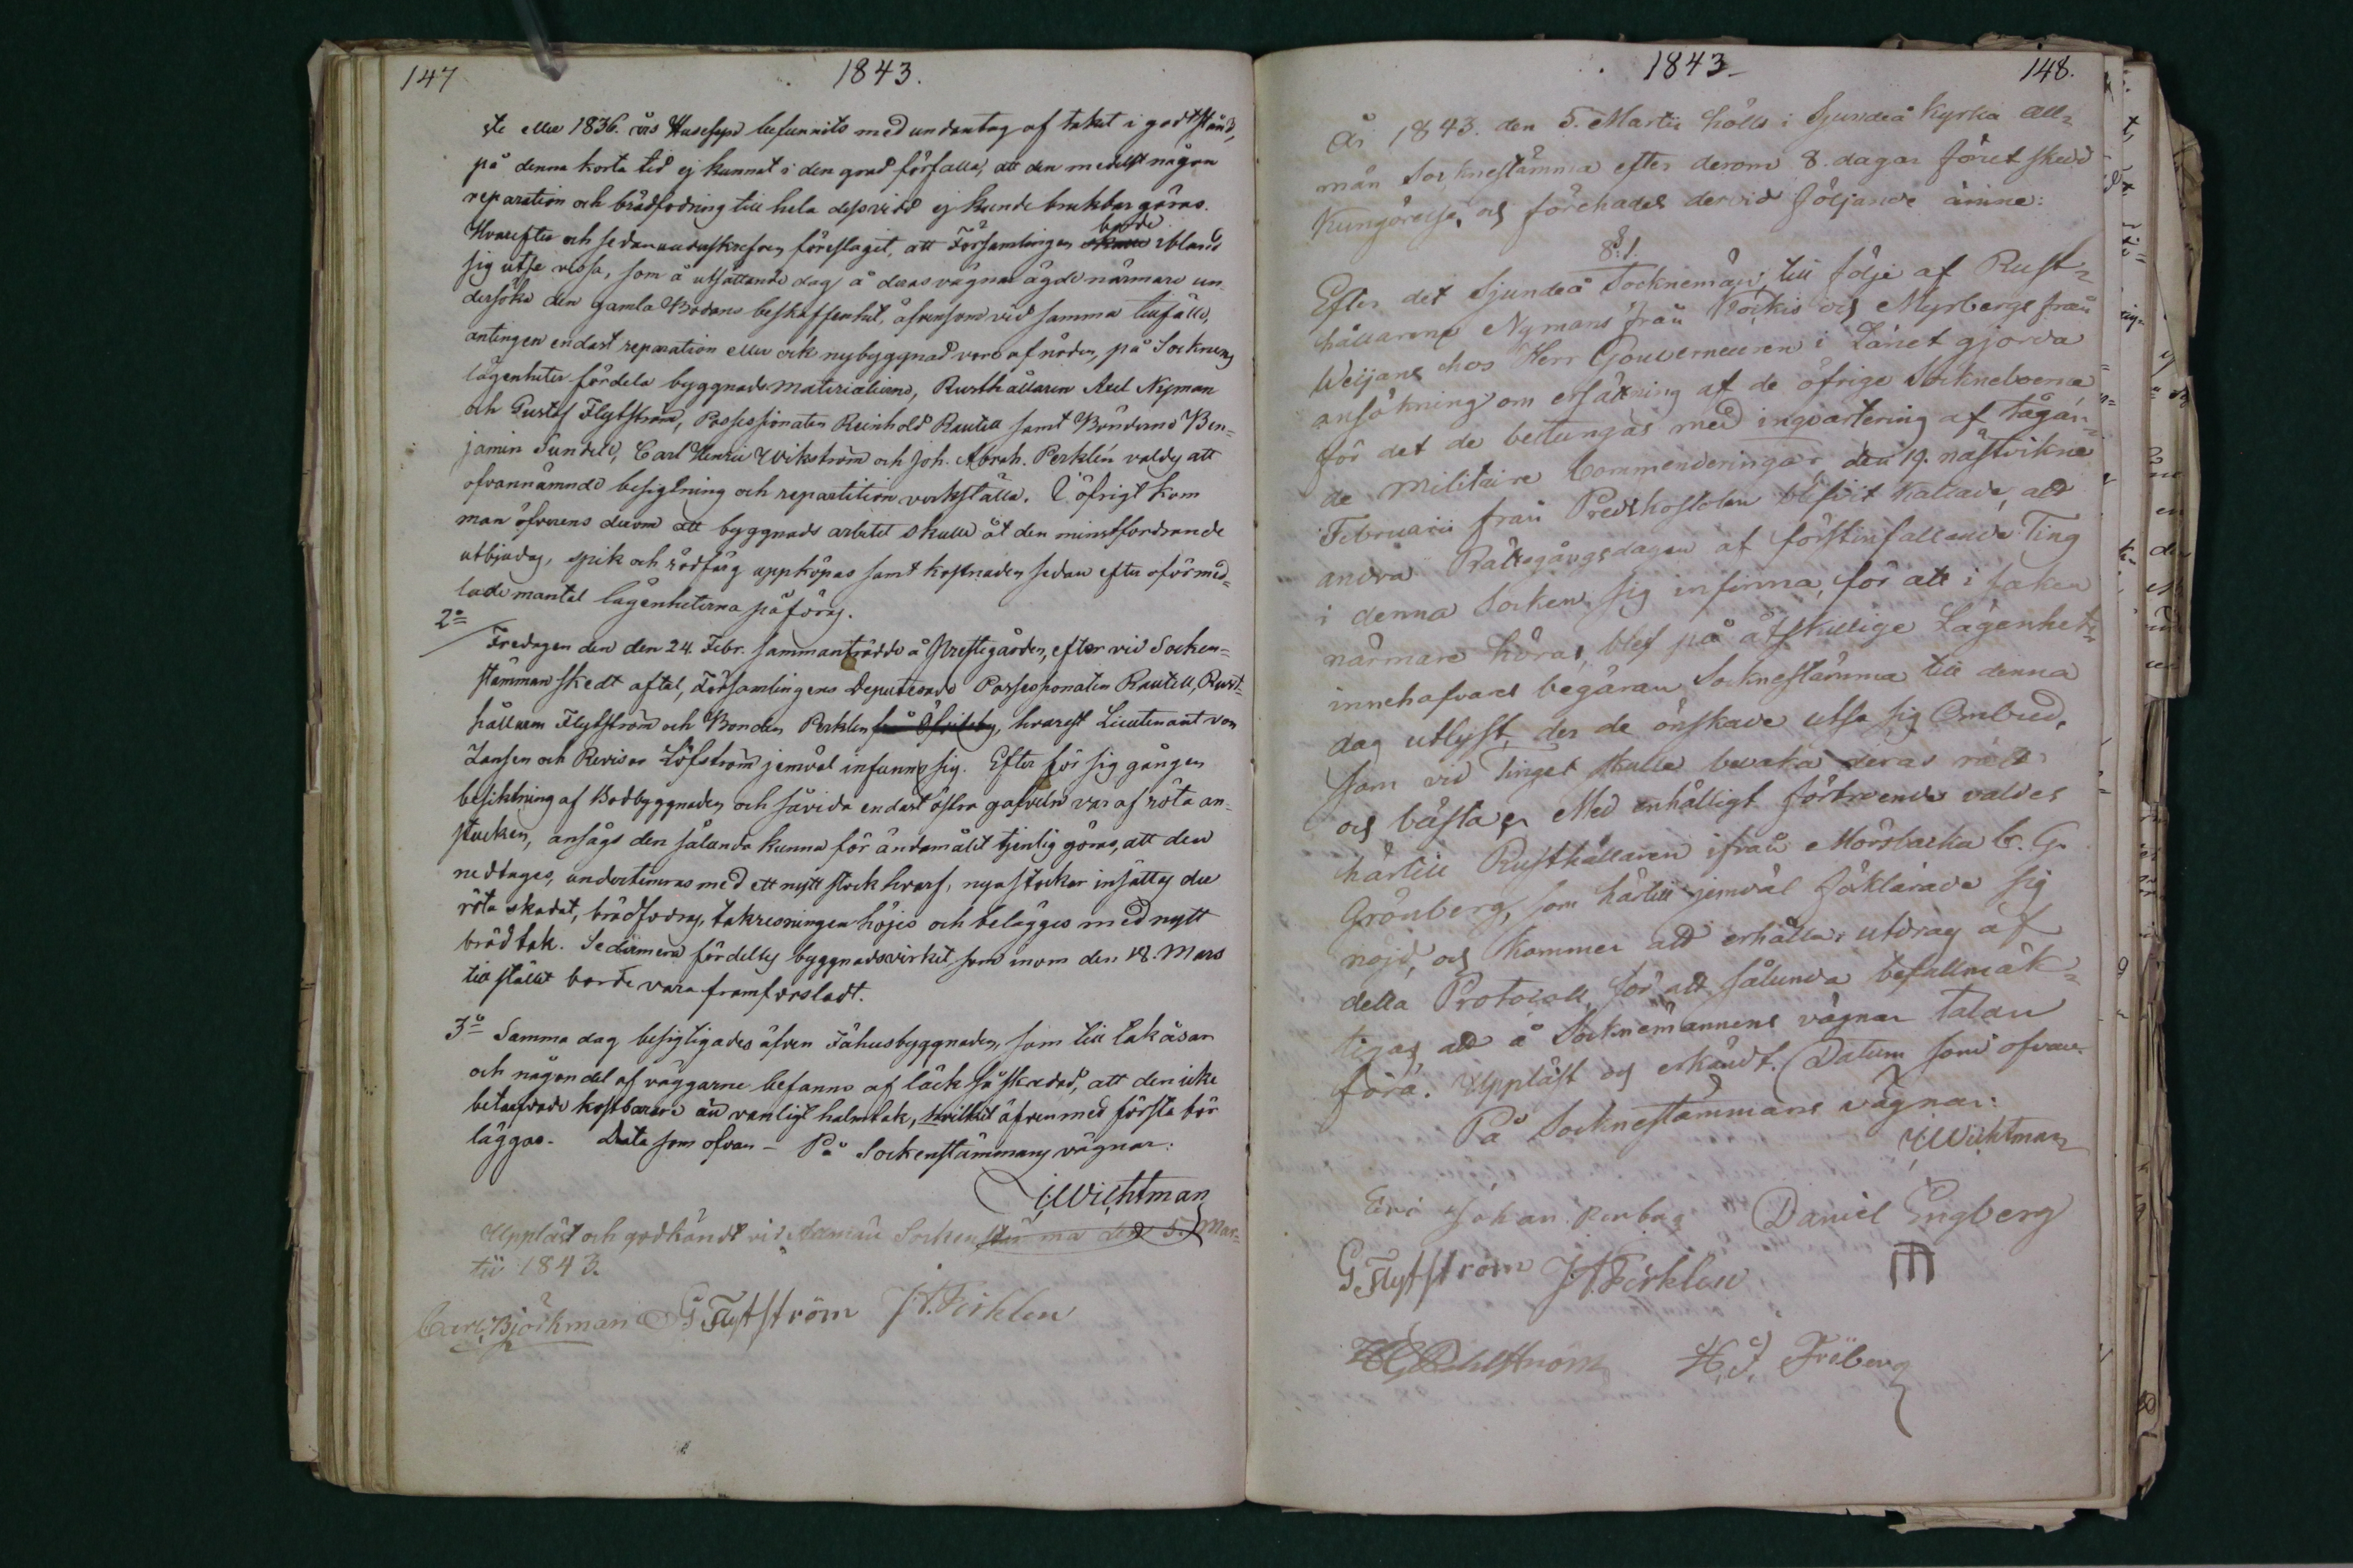 147
1843.
ste eller 1836. års Husesyn befunnits med undantag af taket i godt stånd,
på denna korta tid ej kunnat i den grad förfalla, att den medelst någon
reparation och brädfodring till hela dess vidd ej kunde brukbar göras.
Hvarefter och sedan unduskrefven föreslagit, att Församlingen skulle borde ibland
sig utse vissa, som å utsättande dag å deras vägnar ägde närmare un-
dersöka den gamla Bodans beskaffenhet, äfvensom vid samma tillfälle,
antingen endast reparation eller ock nybyggnad vore af nöden, på Socknens
lägenheter fördela byggnads materialierne, Rusthållaren Axel Nyman
och Gustaf Flytström, Possessionaten Reinhold Rautell samt Bönderne Ben-
jamin Sundell, Carl Henric Wikström och Joh. Abrah. Perklén valdes att
ofvannämnde besigtning och repartition verkställa. I öfrigt kom
man öfverens derom att byggnads arbetet skulle åt den minstfordrande
utbjudas, spik och rödfärg uppköpas samt kostnaden sedan efter oförmed-
lade mantal lägenheterna påföras.
2o
Fredagen den den 24. Febr. sammanträdde å Prestegården, efter vid Socken-
stämman skedt aftal, Församlingens Deputerade Possessionaten Rautell, Rust-
hållaren Flytström och Bonden Perklen, hvarest Lieutenant von
Jansen och Revisor Löfström jemväl infunno sig. Efter för sig gången
besiktning af Bodbyggnaden och såvida endast östra gafveln var af röta an-
stucken, ansågs den sålunda kunna för ändamålet tjenlig göras, att den
nedtages, undertimras med ett nytt stock hvarf, nya stockar insättas der
röta skadat, brädfodras, takresningen höjes och belägges med nytt
brädtak. Sedermera fördeltes byggnadsvirket som inom den 18. Mars
till stället borde vara framforsladt.
3o Samma dag besigtigades äfven Fähusbyggnaden, som till takåsar
och någon del af väggarne befanns af läck så skadad, att den icke
betarfvade kostbarare än vanligt halmtak, hvilket äfven med första bör
läggas. Data som ofvan - På Sockenstämmans vägnar:
J. Wichtman
Uppläst och godkändt vid Allmän Sockenstämma den 5. Mar-
tii 1843.
Carl Björkman G Flytström J.A. Perklen
1843
148.
År 1843. den 5. Martii hölls i Sjundeå Kyrka All-
män Socknestämma efter derom 8. dagar förut skedd
Kungörelse, och förehades dervid följande ämne:
§. 1.
Efter det Sjundeå Socknemän, till följe af Rust-
hållarene Nymans från Kockis och Myrbergs från
Weijans hos Herr Gouverneuren i Länet gjorda
ansökning om ersättning af de öfrige Sockneboerne
för det de betungas med inqvartering af tågan-
de Militaire Commenderingar den 19. nästvikne
Februarii från Predikostolen blifvit kallade, att
andra Rättegångsdagen af förstinfallande Ting
i denna Socken sig infinna, för att i saken
närmare höras, blef på åtskillige Lägenhets-
innehafvares begäran Socknestämma till denna
dag utlyst, der de önskade utse sig Ombud,
som vid Tinget skulle bevaka deras rätt
och bästa. Med enhälligt förtroende valdes
härtill Rusthållaren ifrån Mörsbacka C. G.
Grönberg, som härtill jemväl förklarade sig
nöjd, och kommer att erhålla utdrag af
detta Protocoll, för att sålunda befullmäk-
tigas att å Sockne männens vägnar talan
föra. Uppläst och erkändt. Datum som ofvan.
På Socknestämmans vägnar:
J. Wichtman
Eric Johan Renberg Daniel Engberg
G Flytström J.A. Perklen
H. J. Friberg